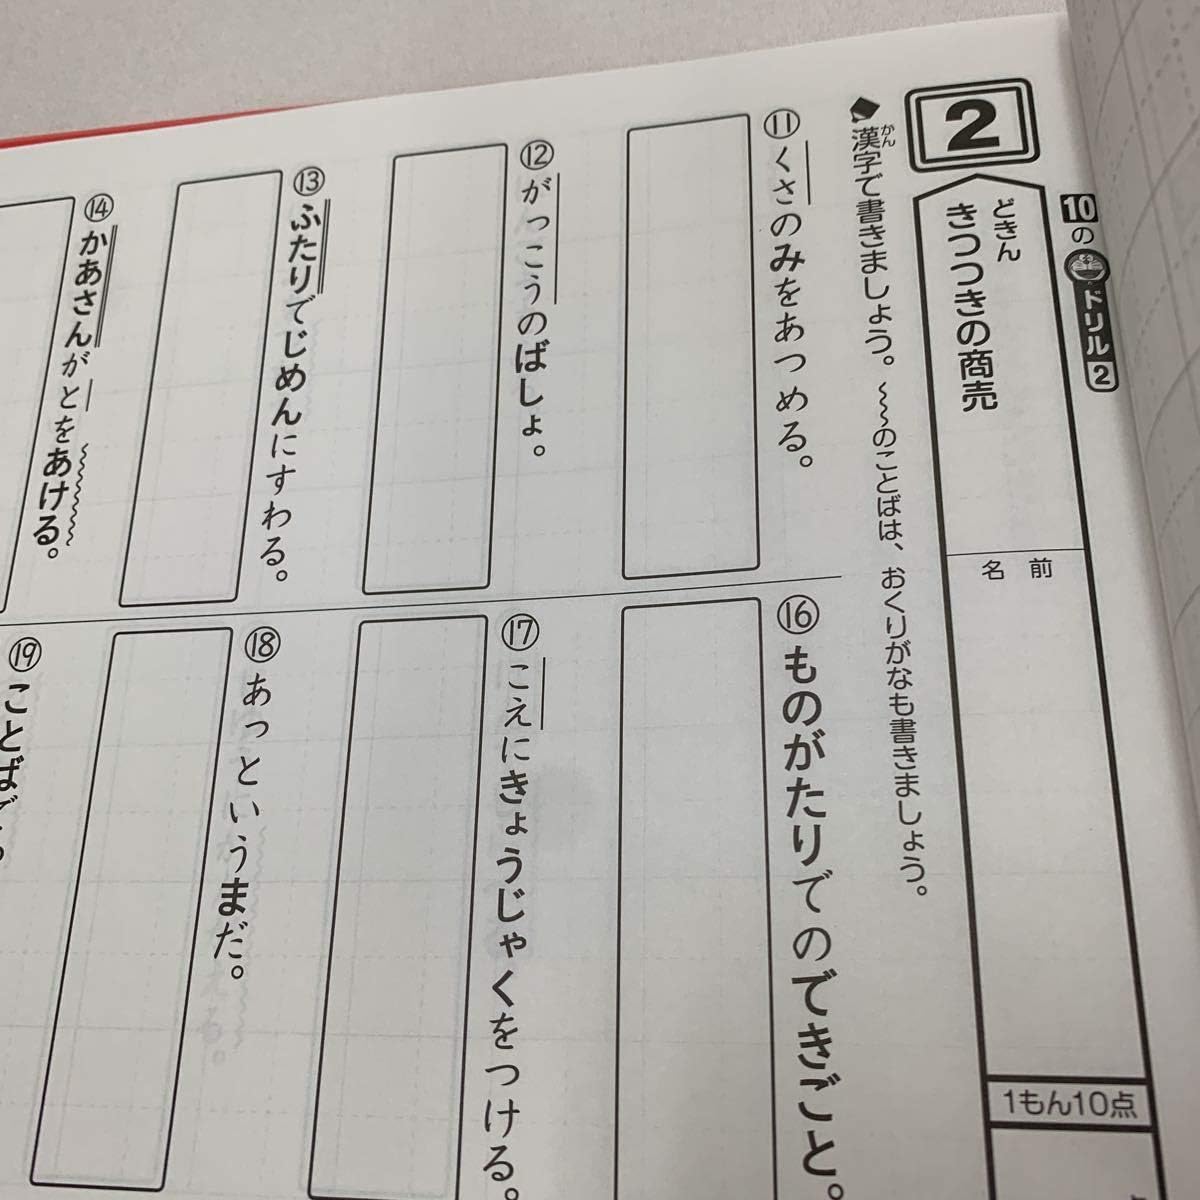 10のドリル2
2
どきん
きつつきの商売
名前
1もん10点
◆漢字で書きましょう。〜〜のことばは、おくりがなも書きましょう。
かん
⑪くさのみをあつめる。
⑫がっこうのばしょ。
⑬ふたりでじめんにすわる。
⑭かあさんがとをあける。
⑯ものがたりでのできごと。
⑰こえにきょうじゃくをつける。
⑱あっというまだ。
⑲ことばで